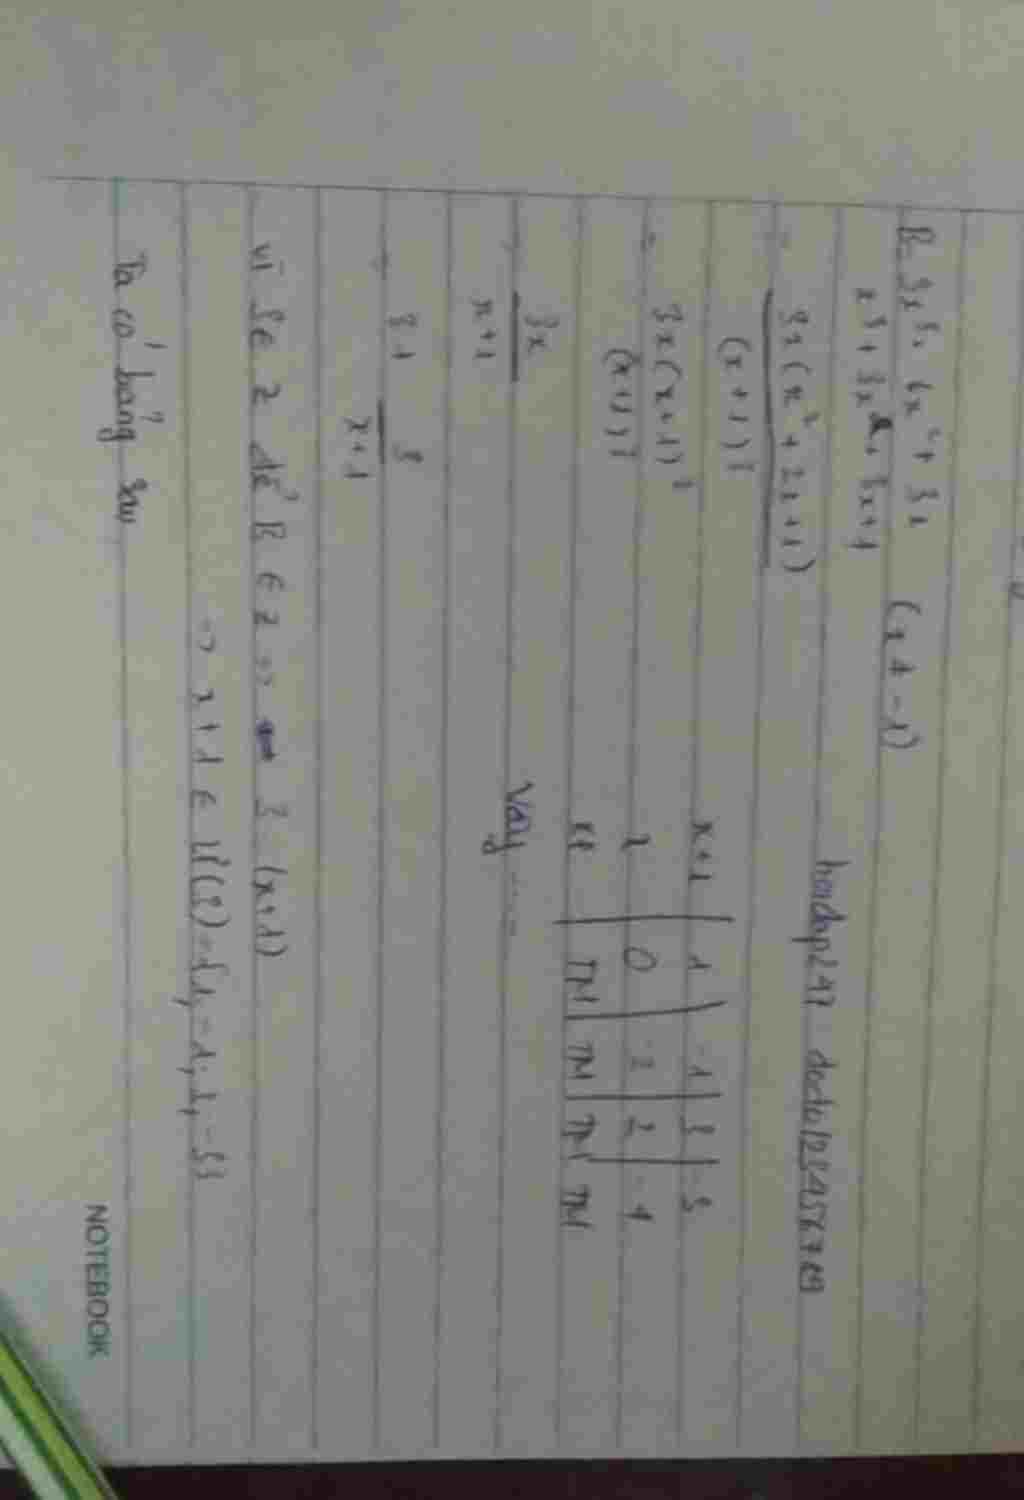 B = 3x³ + 6x² + 3x (x ≠ -1)
x³ + 3x² + 3x + 1
hoidap247 docto123456789
= 3x(x² + 2x + 1)
(x + 1)³
= 3x(x + 1)²
(x + 1)³
= 3x
x + 1
= 3 + 3
x + 1
vì 3 ∈ Z để B ∈ Z => 3 (x + 1)
=> x + 1 ∈ Ư(3) = {1, -1; 3, -3}
Ta có bảng sau
x + 1 | 1 | -1 | 3 | -3
x | 0 | -2 | 2 | -4
TM | TM | TM | TM
Vậy .....
NOTEBOOK